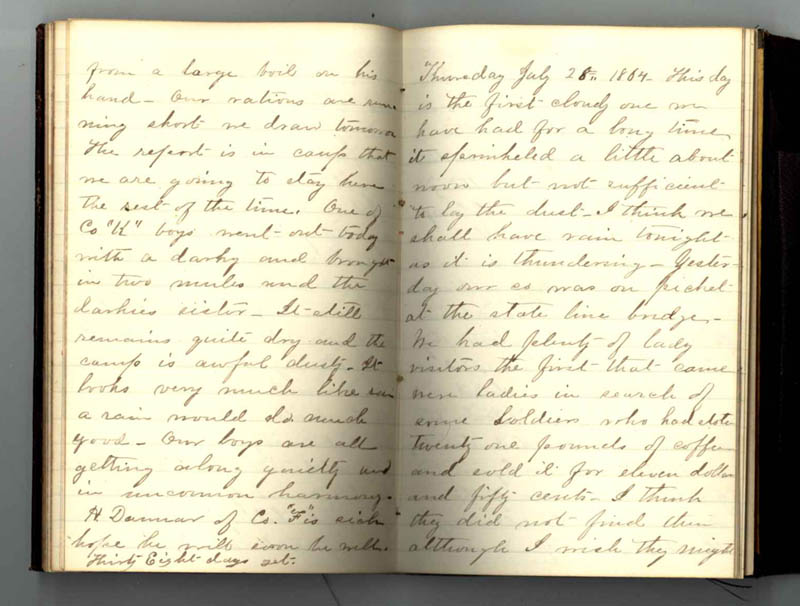 from a large boil on his
hand - Our rations are run
ning short we draw tomorrow
The report is in camp that
we are going to stay here
the rest of the time. One of
Co "K" boys went out today
with a darky and brought
in two mules and the
darkies sister - It still
remains quite dry and the
camp is awful dusty - It
looks very much like rain
a rain would do much
good - Our boys are all
getting along quietly and
in uncommon harmony -
H Dannar of Co. "F" is sick
hope he will soon be well.
Thirty Eight days yet.
Thursday July 28th 1864 - This day
is the first cloudy one we
have had for a long time
it sprinkeled a little about
noon but not sufficient
to lay the dust - I think we
shall have rain tonight
as it is thundering - Yester-
day our co was on picket
at the state line bridge -
We had plenty of lady
visitors the first that came
were ladies in search of
some Soldiers who had stolen
twenty one pounds of coffee
and sold it for eleven dollars
and fifty cents - I think
they did not find them
although I wish they might